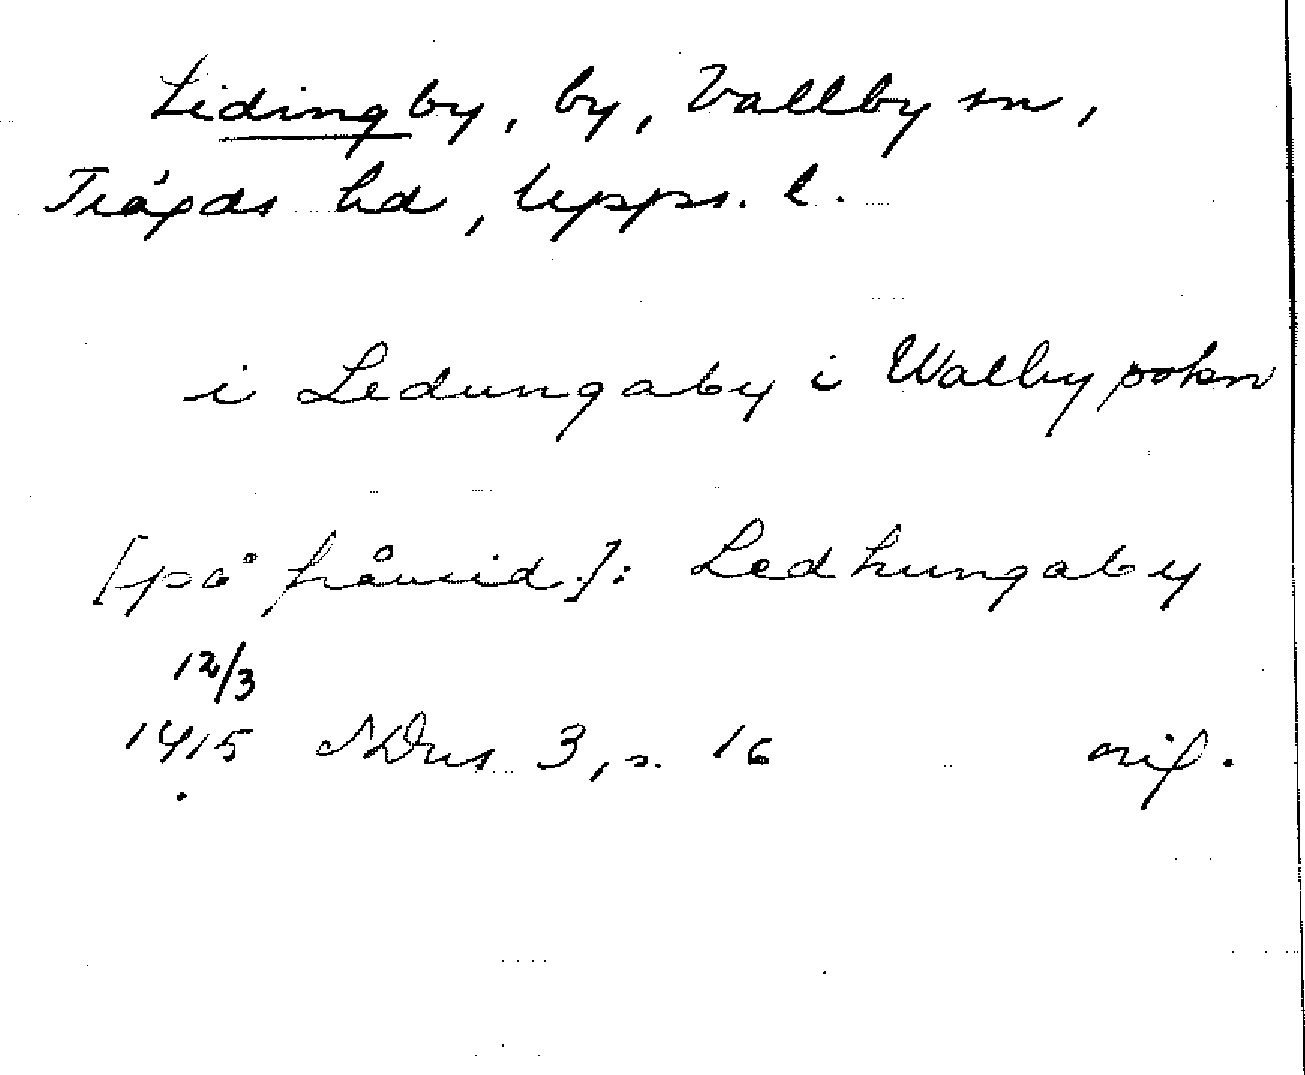 Lidingby, by, Vallby sn,
Trögds hd, Upps. l.
i Ledungaby i Walby sokn
[på frånsid.]: Ledhungaby
12/3
1415 NDns 3, s. 16 orig.